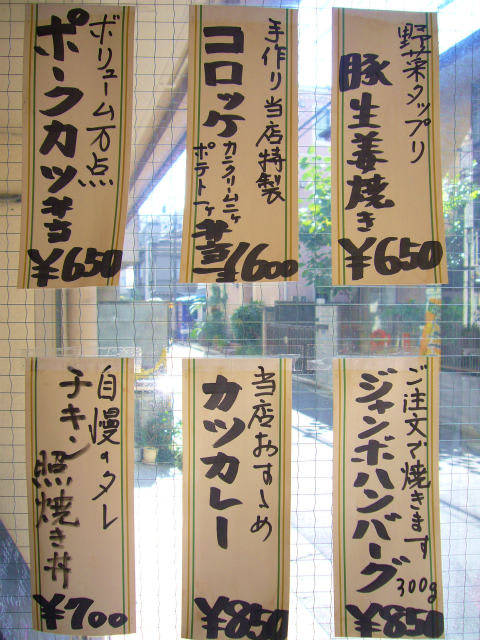 野菜タップリ
豚生姜焼き
¥650
手作り当店特製
コロッケ
カニクリーム二ヶ
ポテト一ヶ
¥600
ボリューム万点
ポークカツ弁当
¥650
ご注文で焼きます
ジャンボハンバーグ
300g
¥850
当店おすゝめ
カツカレー
¥850
自慢のタレ
チキン
照焼き丼
¥700